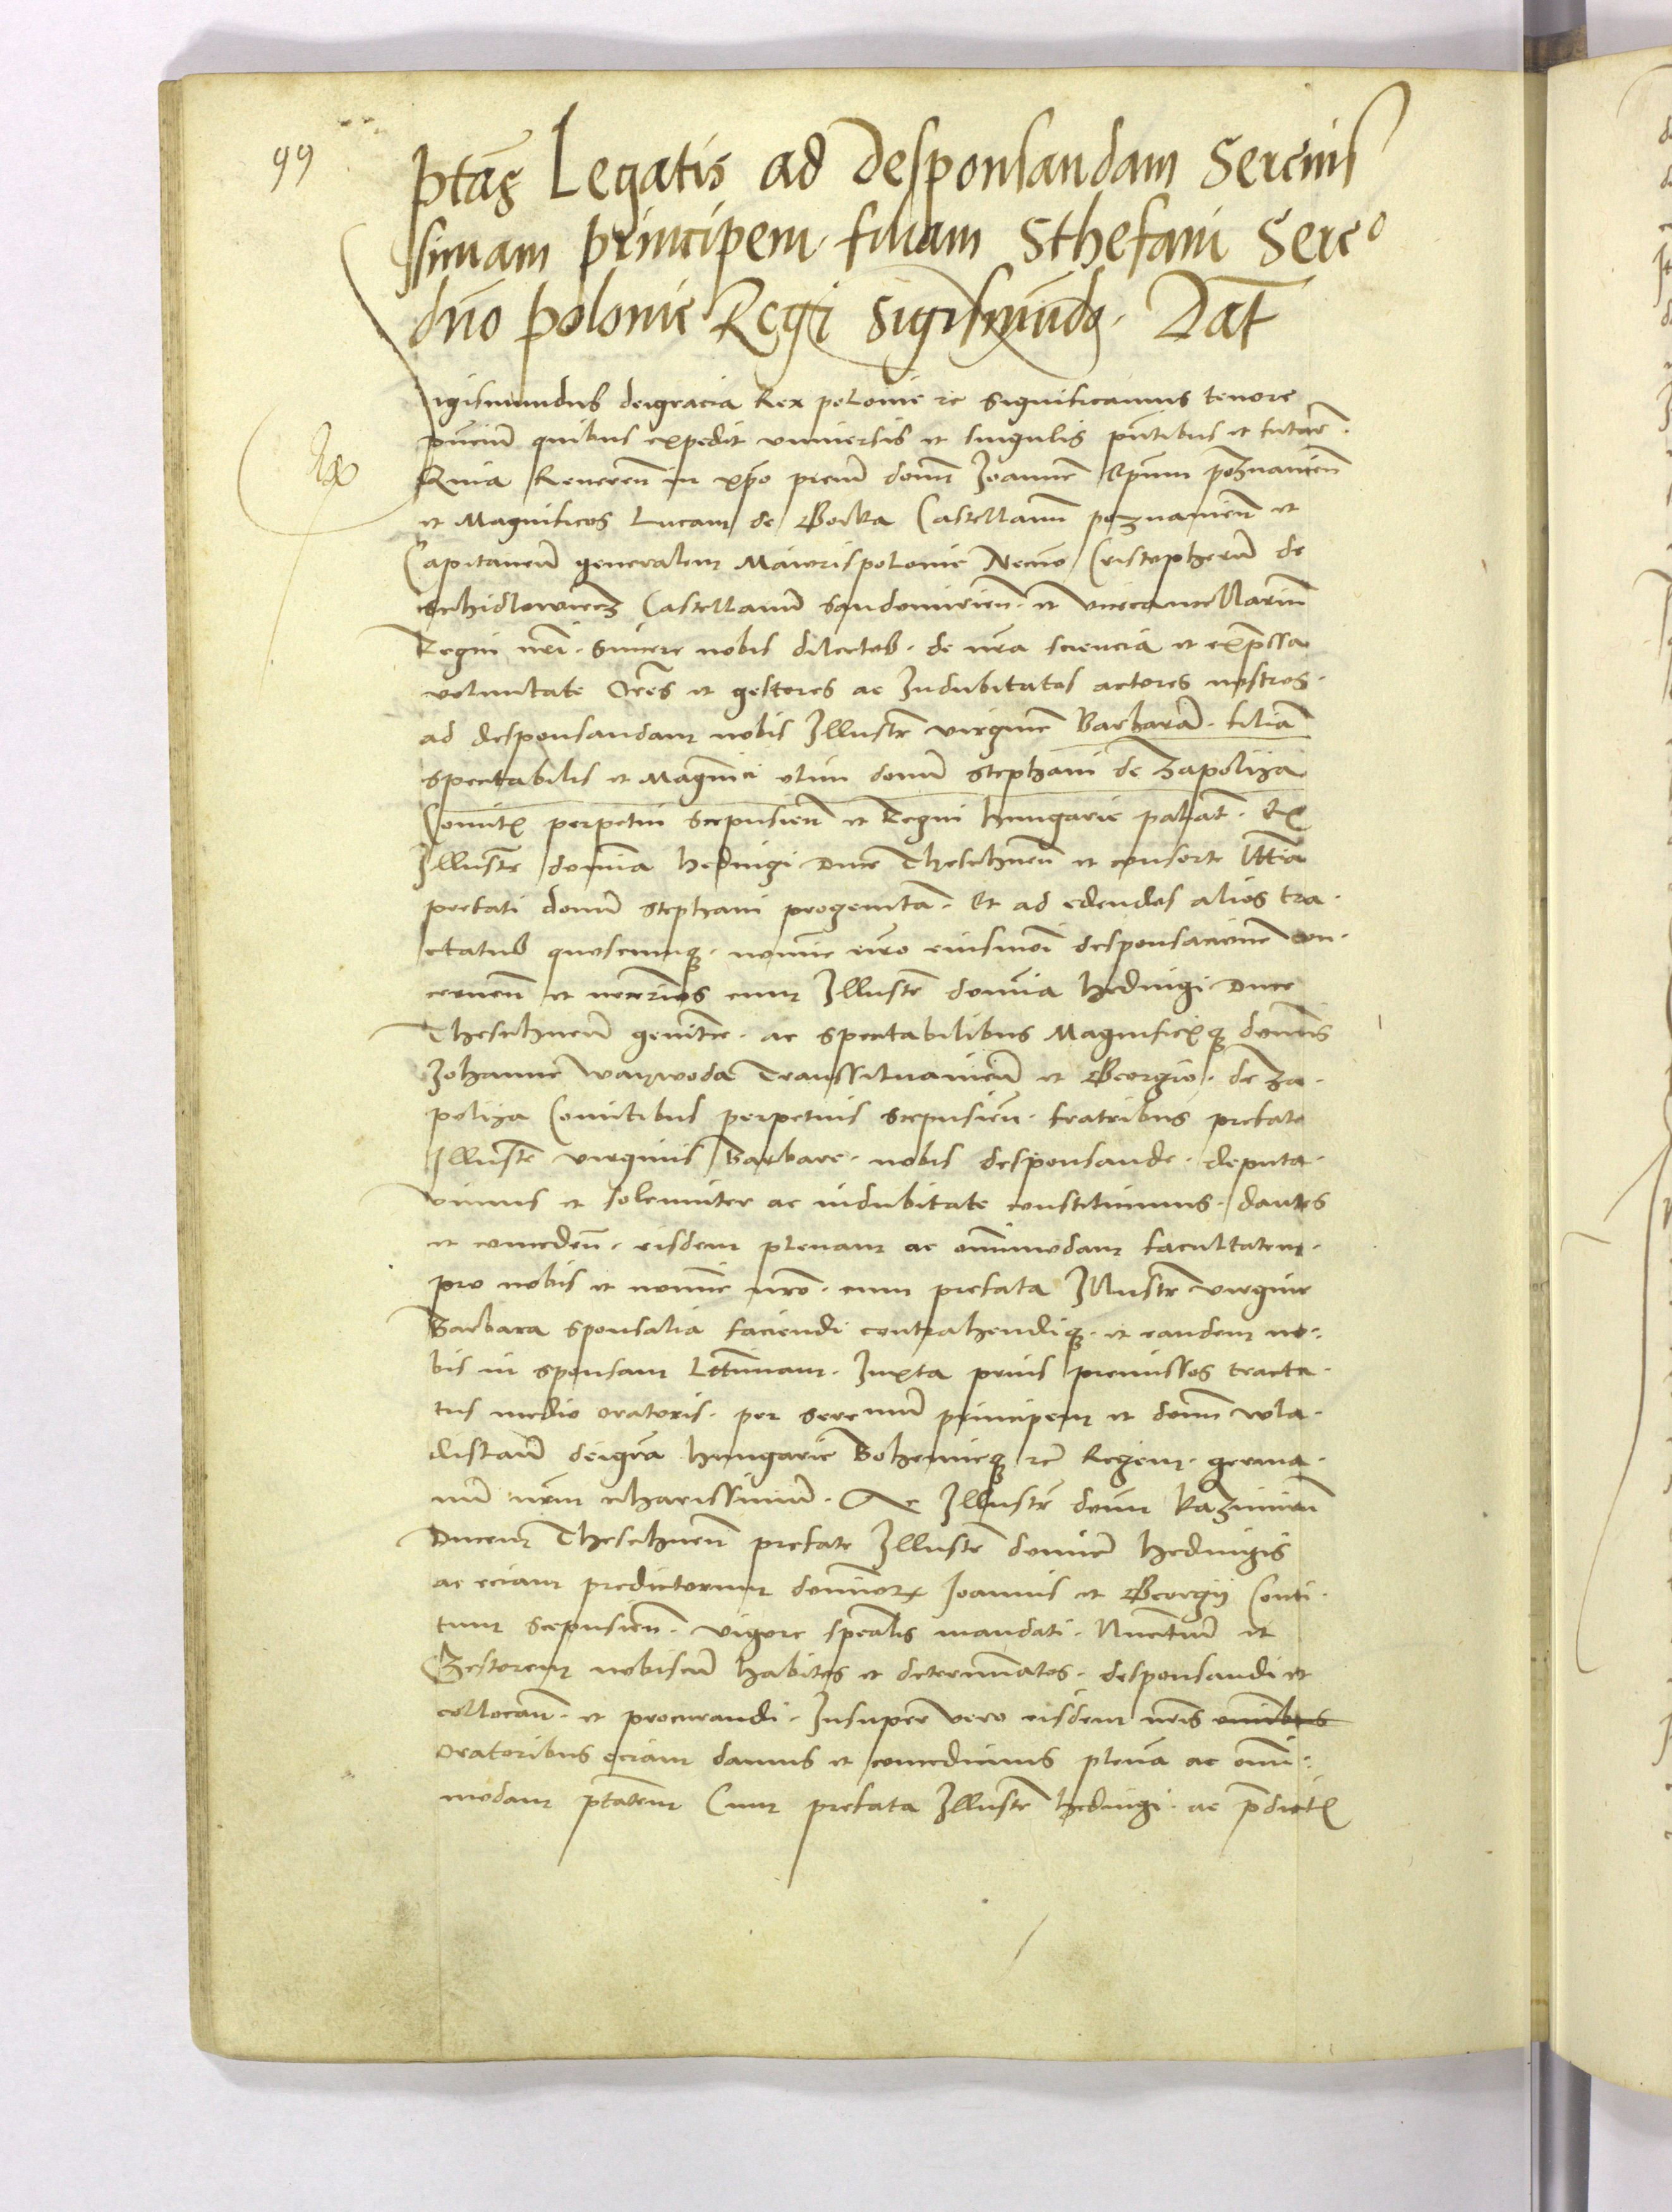 99
ptas Legatis ad desponsandam Serenis
simam principem filiam Sthefani Sereo
dno polonie Regi Sigismundo. Dat
Sigismundus deigracia Rex polonie rc Significamus tenore
pncium quibus expedit vniuersis et singulis pntibus et futur.
Quia Reueren in xpo prem domi Joannem Epum poznanien
et Magnificos Lucam de Gorka Castellanum poznanien et
Capitaneum generalem Maiorispolonie Necno Cristopherum de
Schidlowiecz Castellanum Sandomirien. et vicecancellarium
Regni nri. Sincere nobis dilectos. de nra sciencia et expssa
voluntate Ores et gestores ac Indubitatos actores nostros.
ad desponsandam nobis Illustre virgine Barbara. filia
spectabilis et Magnici olim domi Stephani de Zapolija
Comitis perpetui Scepusien et Regni hungarie palat. Ex
Illustre domina hedwigi Duce Theschinen et consorte lttia
prefati domi Stephani progenitam. Et ad edendos alios tra.
ctatus quoscumq. nomine nro eiusmoi desponsacione con.
cernen et necrios cum Illustre domina hedwigi Duce
Theschinen genitrice. ac spectabilibus Magnificisq dominis
Johanne waywoda Transsiluaniem et Georgio. de Za.
polija Comitibus perpetuis Scepusien. fratribus prefate
Illustre virginis Barbare. nobis desponsande. deputa.
uimus et solemniter ac indubitate constituimus. dantes
et conceden. eisdem plenam ac omnimodam facultatem.
pro nobis et nomine nro. cum prefata Illustre virgine
Barbara sponsalia faciendi contrahendiq. et eandem no.
bis in sponsam Lttimam. Juxta prius premissos tracta.
tus medio oratoris. per serenum principem et domi wla.
dislaum deigra hungarie Bohemieq rc Regem. germa.
num nrum charissimum. Ac Illustre domi Kazimirum
Ducem Theschinen prefate Illustre domine hedwigis
ac eciam predictorum dominorum Joannis et Georgij Comi.
tum Scepusien. vigore spealis mandati. Nunctium et
Gestorem nobiscum habitos et determinatos. desponsandi et
collocan. et procurandi. Insuper vero eisdem nris omnibus
oratoribus eciam damus et concedimus plena ac omni.
modam ptatem Cum prefata Illustre hedwigi. ac pdictis